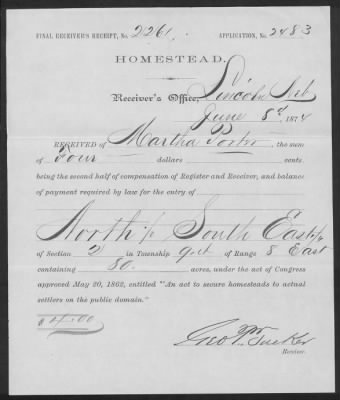 FINAL RECEIVER'S RECEIPT, No. 2261. APPLICATION, No. 2483
HOMESTEAD.
Receiver's Office, Lincoln Neb
June 8th, 1874
RECEIVED of Martha Porter, the sum
of Four dollars cents,
being the second half of compensation of Register and Receiver, and balance
of payment required by law for the entry of
North ½ South East ¼
of Section 2 in Township 9 of Range 8 East
containing 80 acres, under the act of Congress
approved May 20, 1862, entitled "An act to secure homesteads to actual
settlers on the public domain."
$4.00
Tucker
Receiver.